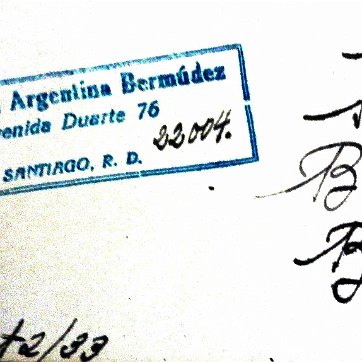 Argentina Bermúdez
enida Duarte 76
22004.
SANTIAGO, R. D.
B
B
2/33